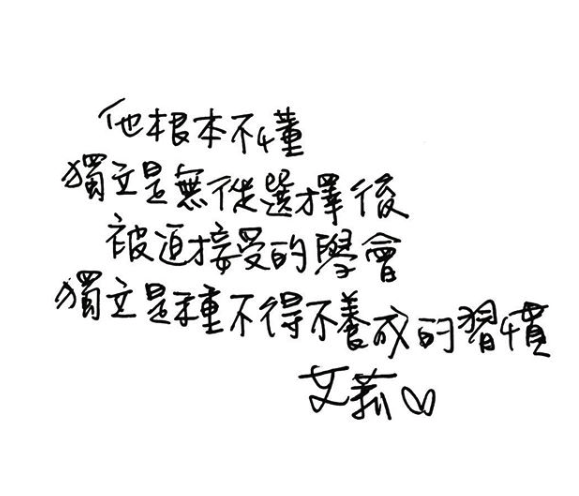 他根本不懂
獨立是無從選擇後
被迫接受的學會
獨立是種不得不養成的習慣
艾菰♡